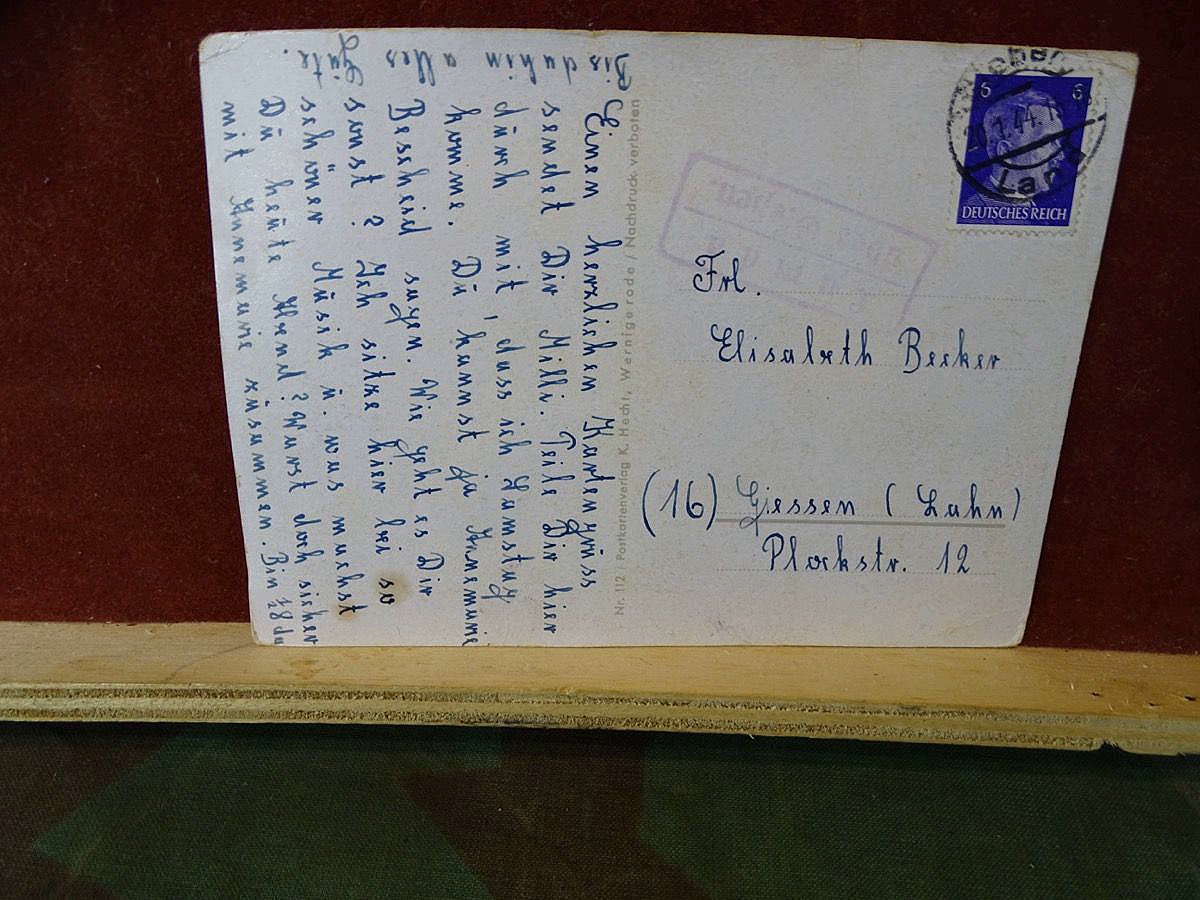 Einen herzlichen Kartengruss
sendet Dir Milli. Teile Dir hier
durch mit, dass ich Samstag
komme. Du kannst ja Annemarie
Bescheid sagen. Wie geht es Dir
sonst? Ich sitze hier bei so
schöner Musik u. was machst
Du heute Abend? Warst doch sicher
mit Annemarie zusammen. Bin ½8 da
Bis dahin alles
Gute.
Nr. 112 Postkartenverlag K. Hecht, Wernigerode / Nachdruck verboten
6 6
DEUTSCHES REICH
Land
Frl.
Elisabeth Becker
(16) Giessen (Lahn)
Plockstr. 12